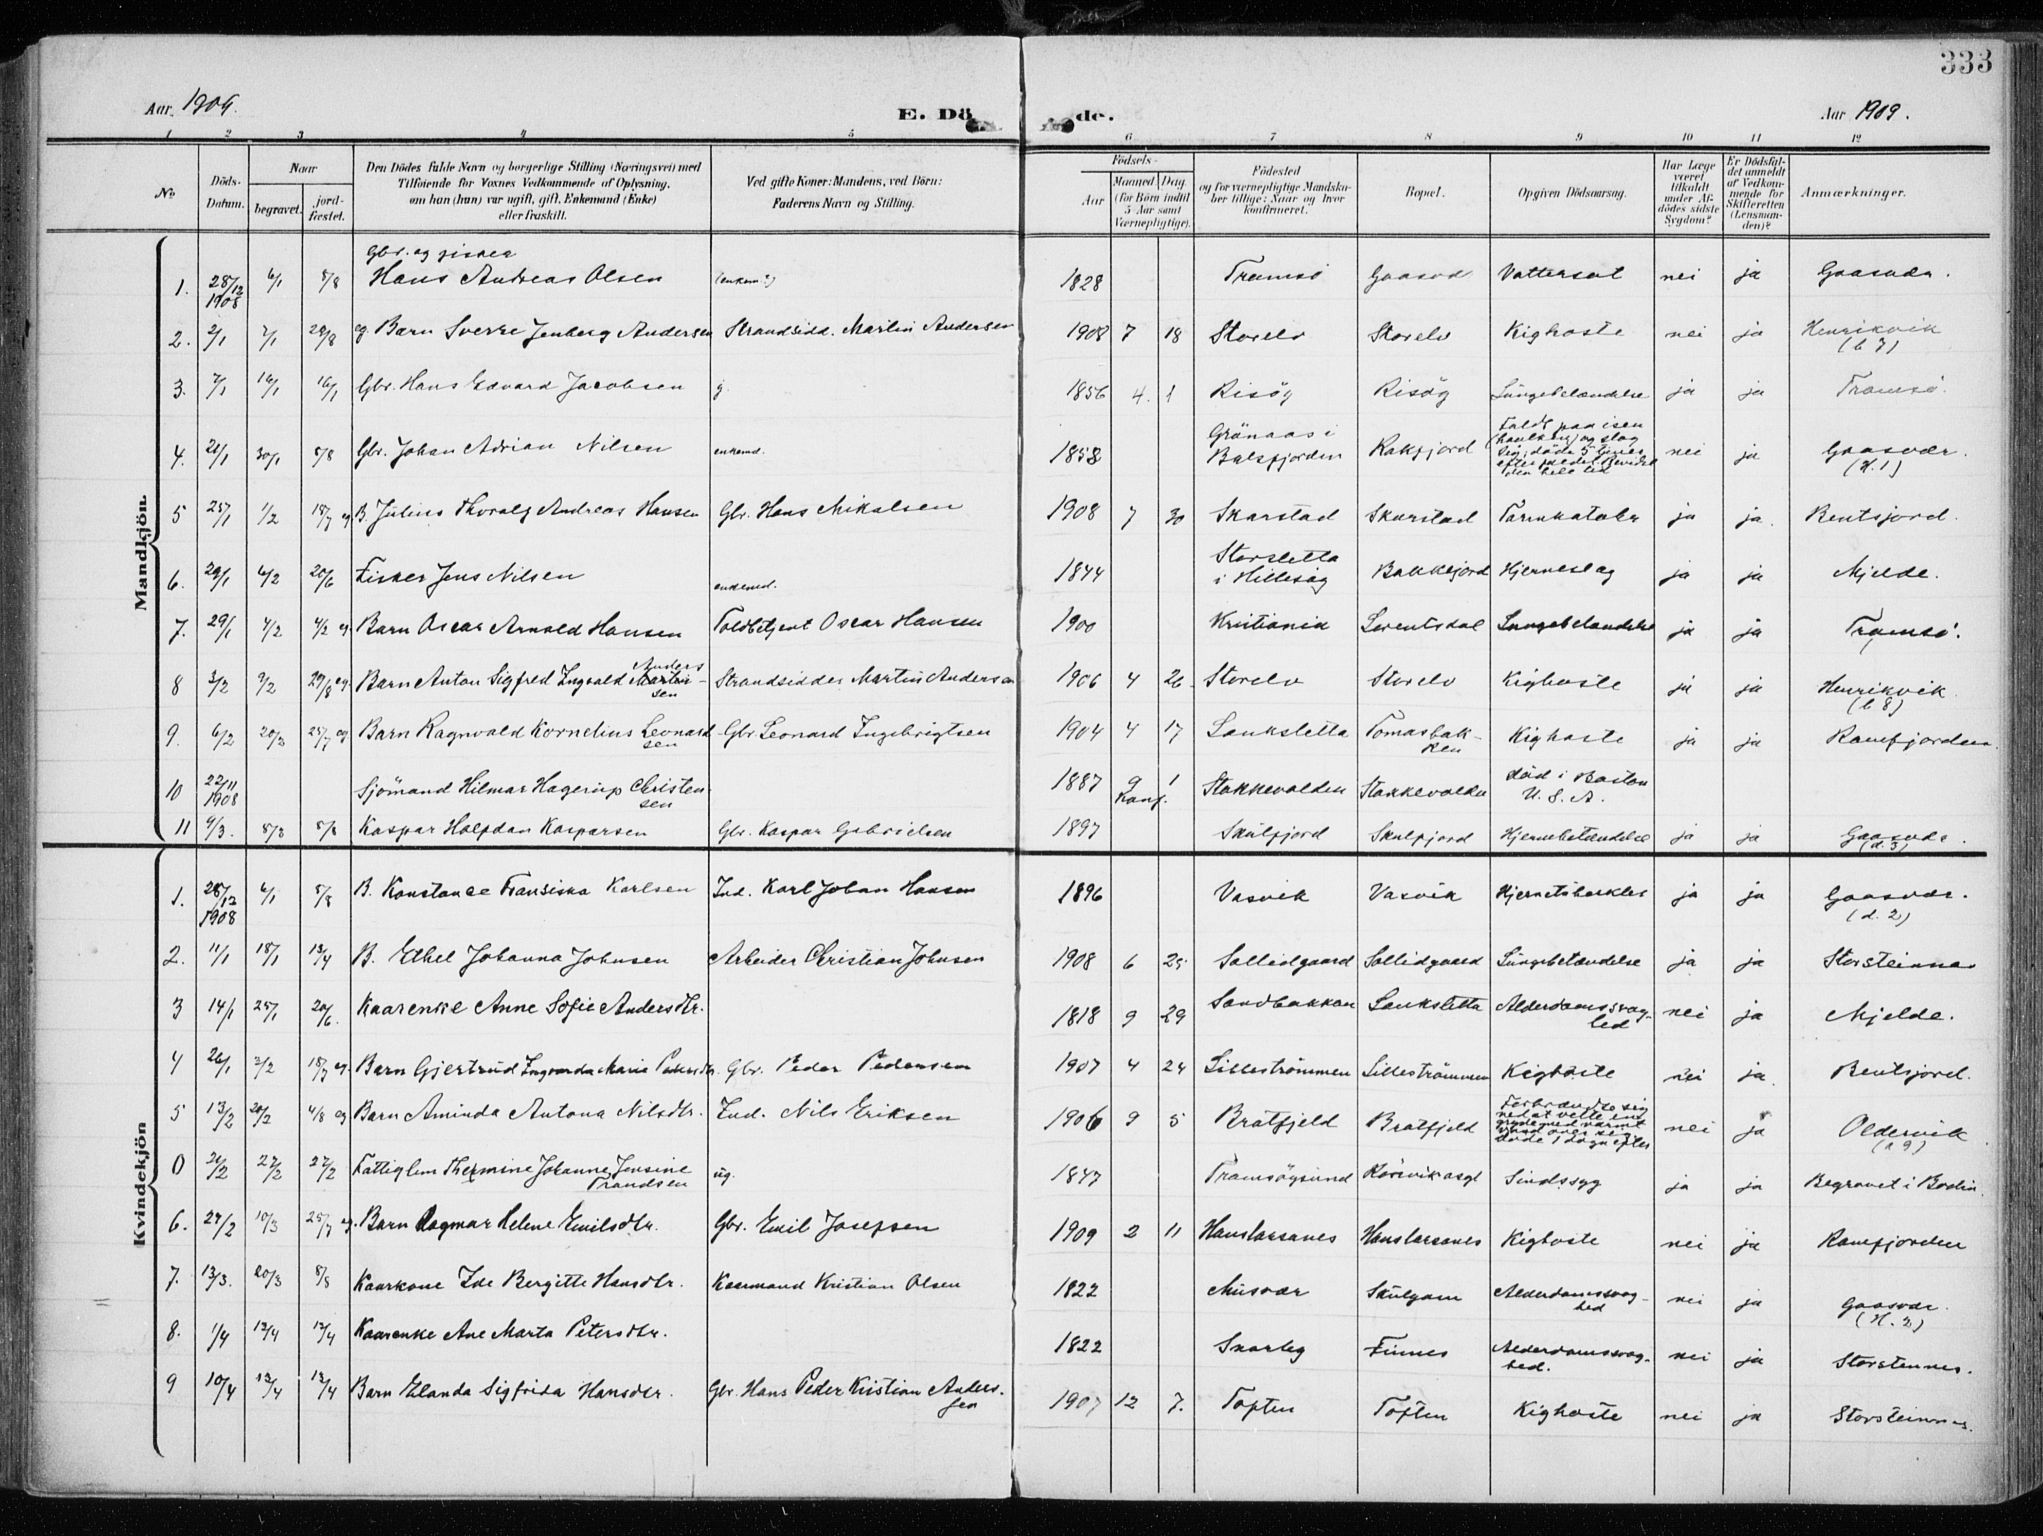 333
Aar 1909. E. Dö de. Aar 1909.
1 2 3 4 5 6 7 8 9 10 11 12
No.
Döds-Datum.
Naar
begravet.
jord-fæstet.
Den Dödes fulde Navn og borgerlige Stilling (Næringsvei) med
Tilföiende for Voxnes Vedkommende af Oplysning,
om han (hun) var ugift, gift, Enkemand (Enke)
eller fraskilt.
Ved gifte Koner: Mandens, ved Börn:
Faderens Navn og Stilling.
Födsels-
Aar
Maaned Dag.
(for Börn indtil
5 Aar samt
Værnepligtige).
Födested
og for værnepligtige Mandska-
ber tillige: Naar og hvor
konfirmeret.
Bopæl.
Opgiven Dödsaarsag.
Har Læge
været
tilkaldt
under Af-
dödes sidste
Sygdom?
Er Dödsfal-
det anmeldt
af Vedkom-
mende for
Skifteretten
(Lensman-
den)?
Anmærkninger.
Mandkjön
Gbr. og fisker
1. 28/12 1908 6/1 8/8 Hans Andreas Olsen 1828 Tromsö nei ja
2. 2/1 7/1 29/8 eg. Barn Sverre Jenberg Andersen Strandsidd. Martin Andersen 1908 7 18 Storelv Storelv Kighoste nei ja Henrikvik
(b 7)
3. 7/1 16/1 16/1 Gbr. Hans Edvard Jacobsen g. 1856 4. 1 Risöy Risöy Lungebetændelse ja ja Tromsö.
4. 21/1 30/1 8/8 Gbr. Johan Adrian Nilsen enkemd. 1858 Grönaas i
Balsfjorden Rakfjord Faldt paa isen
nei ja Gaasvær.
(H. 1)
5 25/1 1/2 18/7 eg B. Julius Thoralf Andreas Hansen Gbr. Hans Mikalsen 1908 7 30 Skarstad Skarstad ja ja. Bentsjord.
6. 29/1 6/2 20/6 Fisker Jens Nilsen enkemd. 1844 Storsletta
i Hillesög Bakkejord Hjerneslag ja ja Mjelde.
7. 29/1 4/2 4/2 eg. Barn Oscar Arnold Hansen Toldbetjent Oscar Hansen 1900 Kristiania Lorentsdal Lungebetændelse ja ja Tromsö.
8 3/2 9/2 29/8 eg Barn Anton Sigfred Ingvald Anders-
sen Strandsidder Martin Andersen 1906 4 26 Storelv Storelv Kighoste ja ja Henrikvik.
(b 8)
9. 6/2 20/3 25/7 eg Barn Ragnvald Kornelius Leonard
sen Gbr Leonard Ingebrigtsen 1904 4 17 Lanksletta Tomasbak-
ken Kighoste ja ja Ramfjorden.
10 22/11 1908 Sjömand Hilmar Hagerup Christen-
sen 1887 9 1
Konf. Stakkevolden Stakkevolden död i Boston
U. S. A.
11 9/3. 8/8 Kaspar Halfdan Kasparsen Gbr. Kaspar Gabrielsen 1897 Skulfjord Skulfjord Hjernebetændelse ja ja
(d. 3)
Kvindekjön
1. 28/12 1908 6/1 8/8 B. Konstance Fransiska Karlsen Ind. Karl Johan Hansen 1896 Vasvik Vasvik ja ja Gaasvær.
(d. 2)
2. 11/1 18/1 13/4 B. Ethel Johanna Johnsen Arbeider Christian Johnsen 1908 6 25 Sollidgaard Sollidgaard Lungebetændelse ja ja Storsteinnes
3 14/1 25/1 20/6. Kaarenke Anne Sofie Andersdtr. 1818 9 29 Sandbakken Lanksletta Alderdomssvag-
hed nei ja Mjelde.
4 26/1 2/2 18/7 eg. Barn Gjertrud Ingvarda Marie Pedersdtr. Gbr. Peder Pedersen 1907 4 24 Lilleströmmen Lilleströmmen Kighoste nei ja. Bentsjord.
5 13/2 20/2 4/8 eg Barn Aminda Antona Nilsdtr. Ind. Nils Eriksen 1906 9 5 Bratfjeld Bratfjeld Forbrændte sig
ved at vælte en
gryde med varmt
vand over sig
döde 1 dögn efter nei ja Oldervik
(a 9)
0 21/2 27/2 27/2 Fattiglem Thermine Johanne Jensine
Trondsen ug. 1847 Tromsöysund Sindssyg ja ja Begravet i Bodin.
6. 27/2 10/3 25/7 eg. Barn Dagmar Helene Emilsdtr. Gbr. Emil Josefsen 1909 2 11 Hanslarsanes Hanslarsanes Kighoste nei ja Ramfjorden
7. 13/3. 20/3 8/8 Kaarkone Ide Bergitte Hansdtr. Kaarmand Kristian Olsen 1822 Musvær Skulgam Alderdomssvag-
hed nei ja Gaasvær.
(H. 2)
8. 1/4 13/4 13/4 Kaarenke Ane Marta Petersdtr. 1822 Snarby Finnes Alderdomssvag-
hed. nei ja Storstennes.
9 10/4 13/4 13/4 Barn Elanda Sigfrida Hansdtr. Gbr. Hans Peder Kristian Anders-
sen 1907 12 7. Toften Toften Kighoste nei ja Storsteinnes